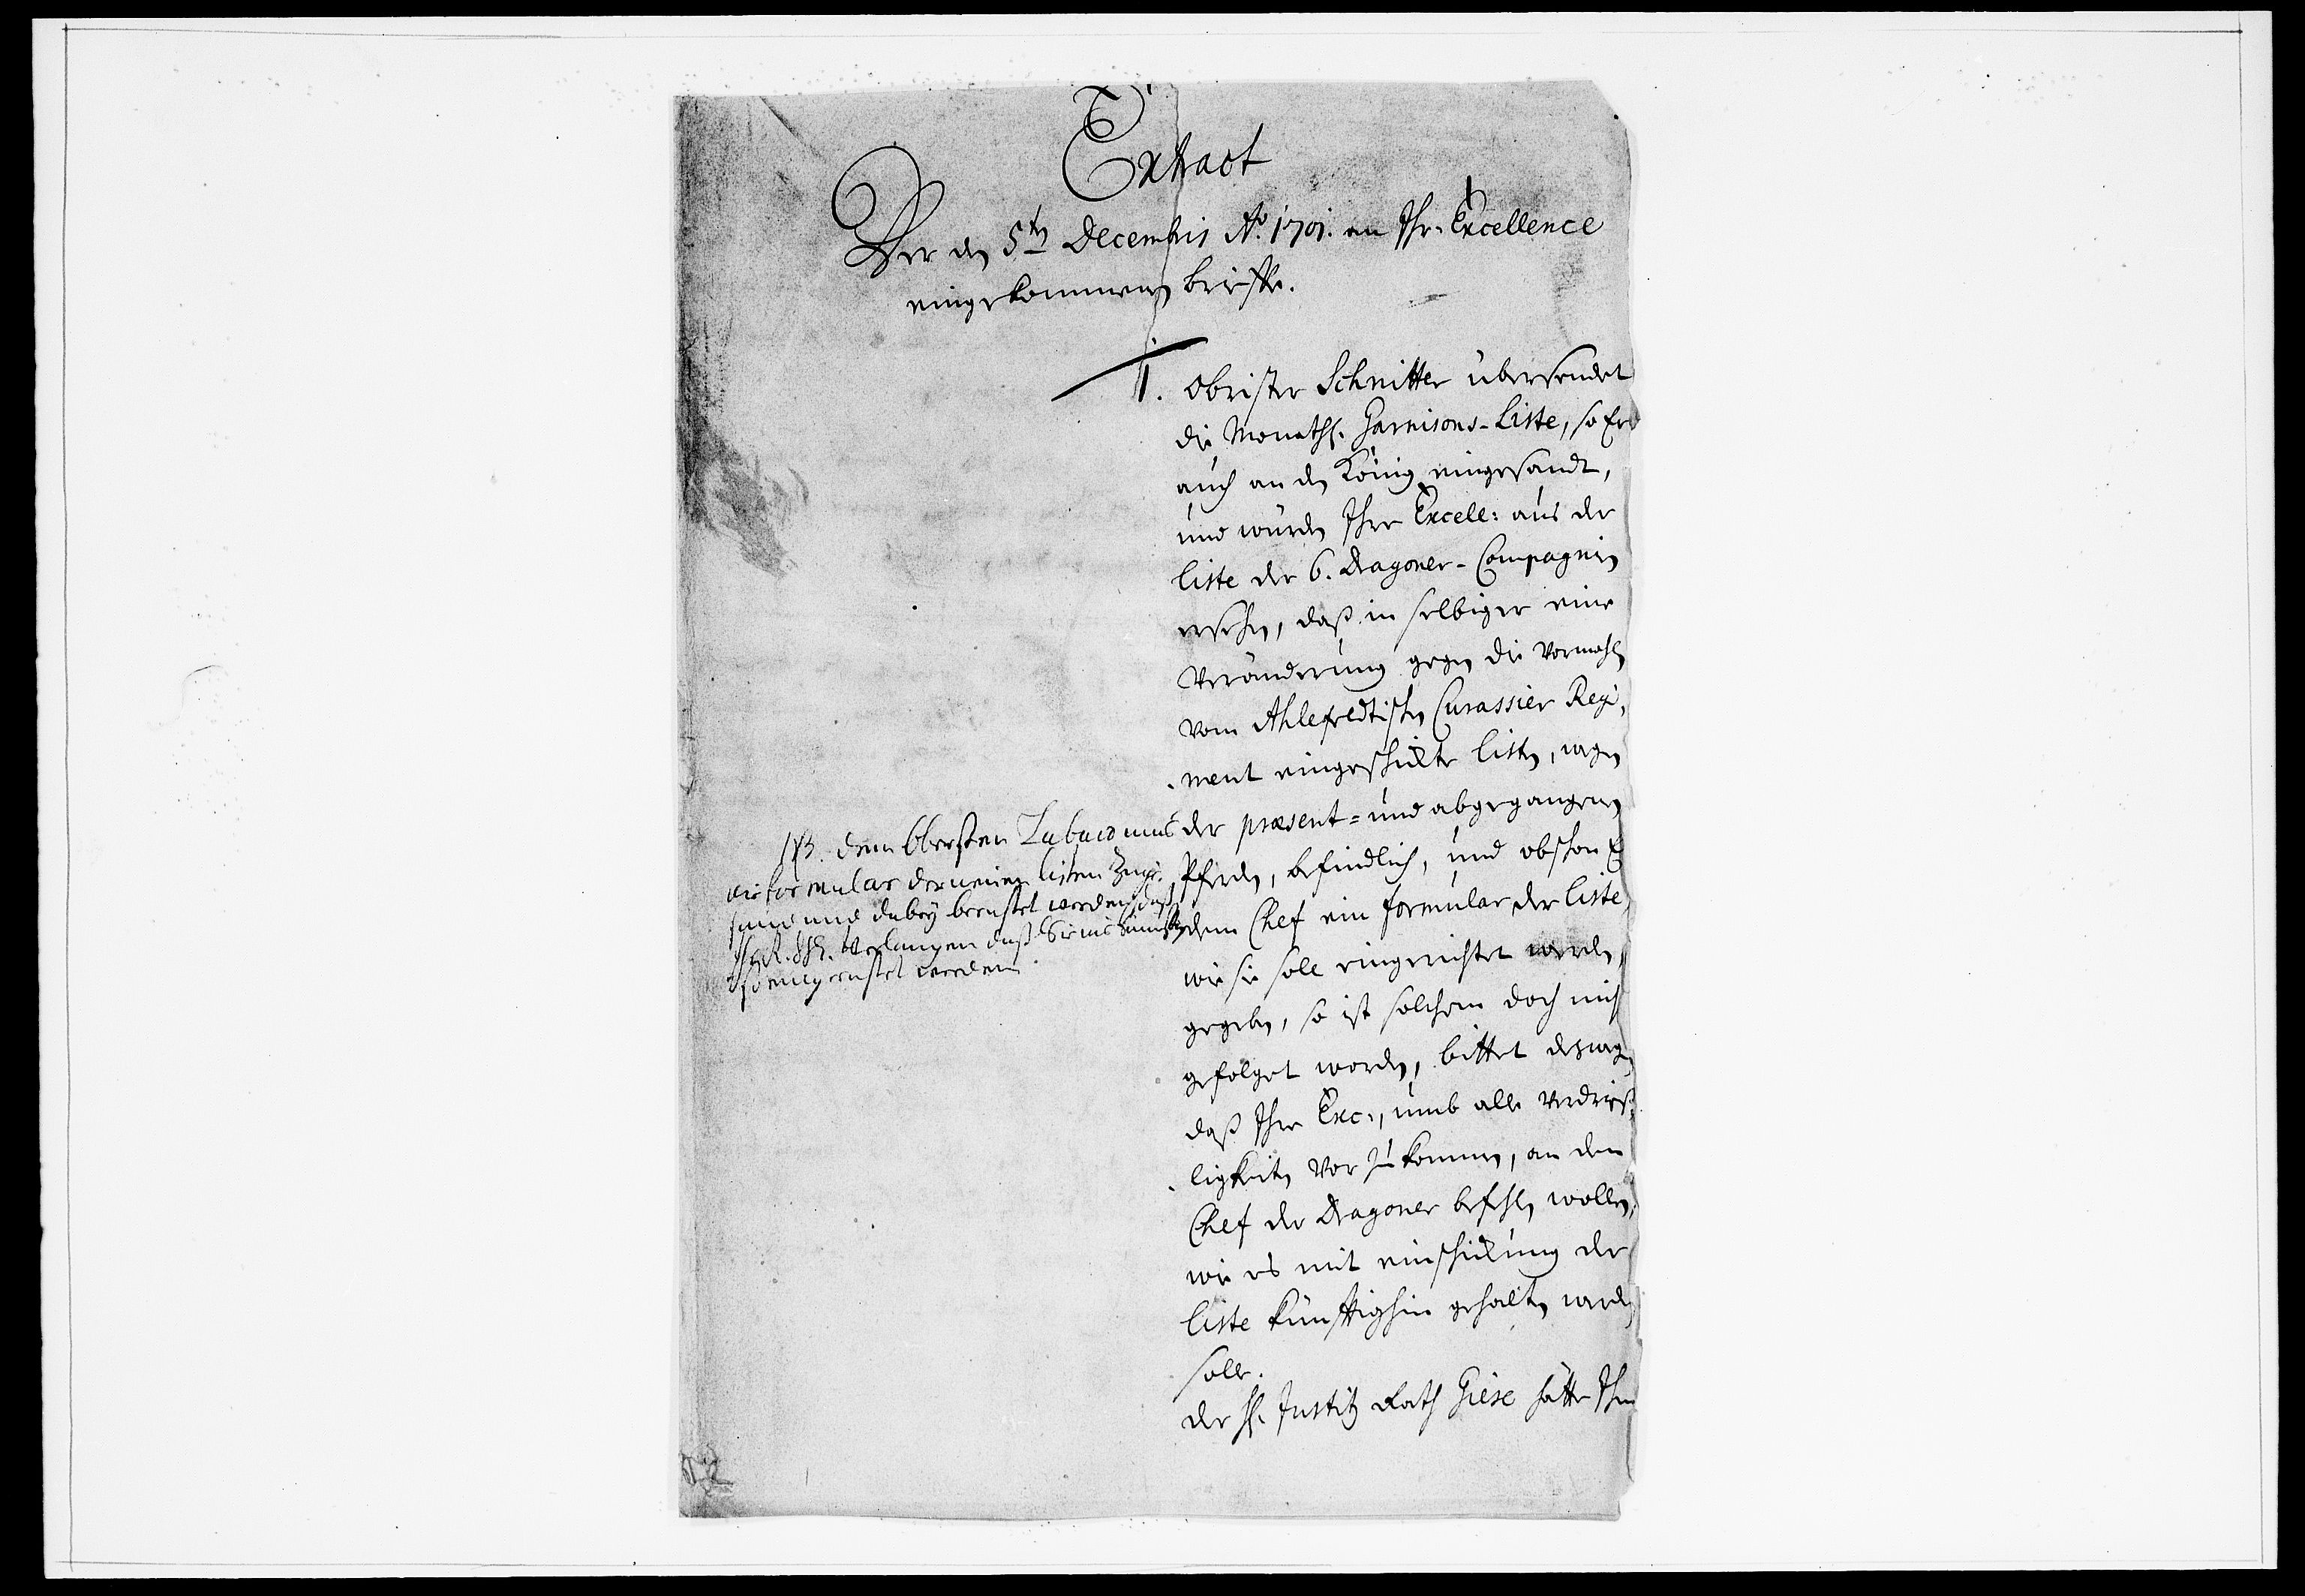 Extract
Der den 5ten Decembris Ao. 1701. an Ihr. Excellence
eingekommenen brieffe.
1. Obrister Schnitter übersendet
die Monathl. Garnisons-Liste, so Er
auch an den König eingesandt,
und würden Ihre Excell: aus der
Liste der 6. Dragoner-Compagnien
ersehen, daß in selbiger eine
Veränderung gegen die vormahls
vom Ahlefeldtischen Curassier Regi-
ment eingeschickte Listen, wegen
der præsent- und abgegangenen
Pferden, befindlich, und obschon Er
dem Chef ein formular der Liste,
wie sie soll eingerichtet werden,
gegeben, so ist solchem doch nicht
gefolget worden, bittet deswegen
daß Ihre Exc:, umb alle verdrieß-
ligkeiten vor zu kommen, an dem
Chef der Dragoner befehlen wollen,
wie es mit einschickung der
Liste künfftighin gehalten werden
solle.
Der H. Justitz Rath Giese hätte Ihm
NB. dem Obersten
die formular der neuen listen zuge-
sand und dabey berichtet werden, daß
Verlangen daß Sie ins künfftige
so eingerichtet werden.